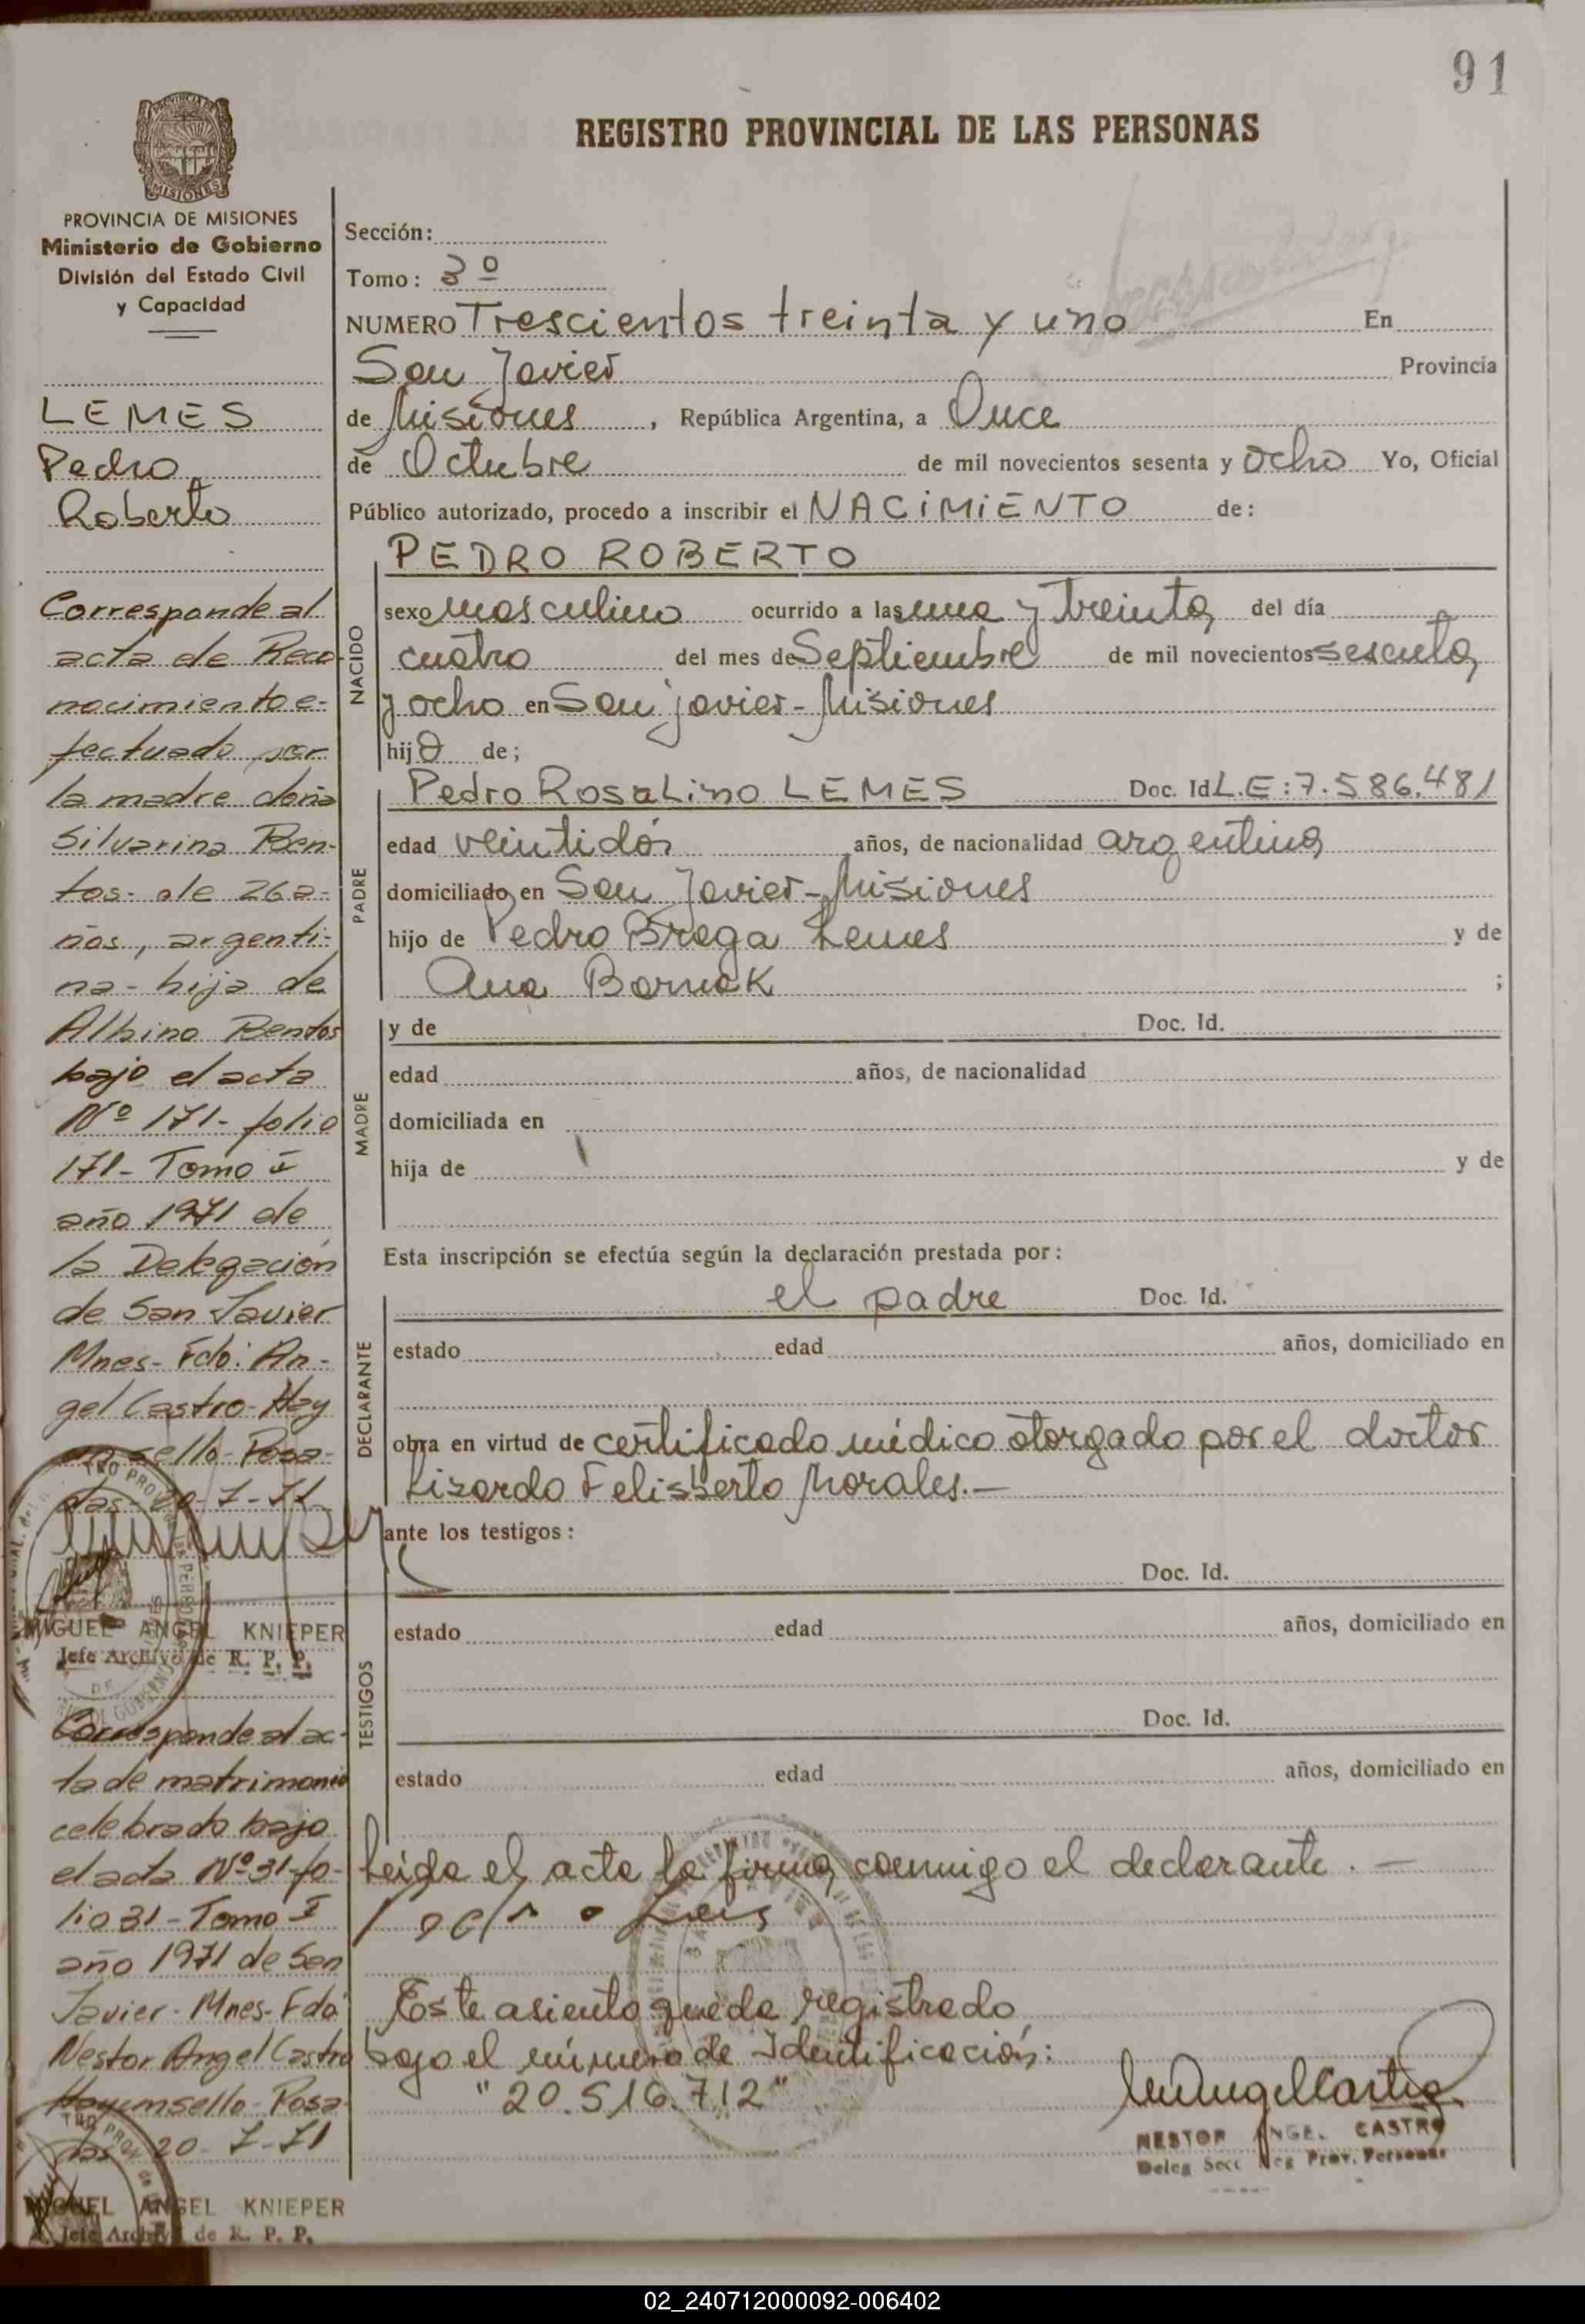 91
REGISTRO PROVINCIAL DE LAS PERSONAS
PROVINCIA DE MISIONES
Ministerio de Gobierno
División del Estado Civil
y Capacidad
LEMES
Pedro
Roberto
Corresponde al
acta de Reco-
nocimiento e-
fectuado por
la madre doña
Silvarina Ben-
tos- de 26 a-
ños, argenti-
na- hija de
Albino Bentos
bajo el acta
Nº 171- folio
171- Tomo I
año 1971 de
la Delegación
de San Javier
Mnes- Fdo: An-
gel Castro- Hay
un sello- Posa-
das- 20-7-71
MIGUEL ANGEL KNIEPER
Jefe Archivo de R. P. P.
Corresponde al ac-
ta de matrimonio
celebrado bajo
el acta Nº 31- fo-
lio 31- Tomo I
año 1971 de San
Javier- Mnes- Fdo
Nestor Angel Castro
Hay un sello- Posa-
das 20-7-71
MIGUEL ANGEL KNIEPER
Jefe Archivo de R. P. P.
Sección:
Tomo: 3º
NUMERO Trescientos treinta y uno En
San Javier Provincia
de Misiones, República Argentina, a Once
de Octubre de mil novecientos sesenta y ocho Yo, Oficial
Público autorizado, procedo a inscribir el NACIMIENTO de:
NACIDO
PEDRO ROBERTO
sexo masculino ocurrido a las una y treinta del día
cuatro del mes de Septiembre de mil novecientos sesenta
y ocho en San Javier- Misiones
hijo de;
PADRE
Pedro Rosalino LEMES Doc. Id L.E: 7.586.481
edad veintidós años, de nacionalidad argentina
domiciliado en San Javier- Misiones
hijo de Pedro Braga Lemes y de
Ana Bornak ;
MADRE
y de Doc. Id.
edad años, de nacionalidad
domiciliada en
hija de y de
Esta inscripción se efectúa según la declaración prestada por:
DECLARANTE
el padre Doc. Id.
estado edad años, domiciliado en
obra en virtud de certificado médico otorgado por el doctor
Lizardo Felisberto Morales.-
ante los testigos:
TESTIGOS
Doc. Id.
estado edad años, domiciliado en
Doc. Id.
estado edad años, domiciliado en
Leída el acta la firma conmigo el declarante.-
Este asiento queda registrado
bajo el número de Identificación:
"20.516.712"
NESTOR ANGEL CASTRO
Deleg Secc Reg Prov. Personas
02_240712000092-006402